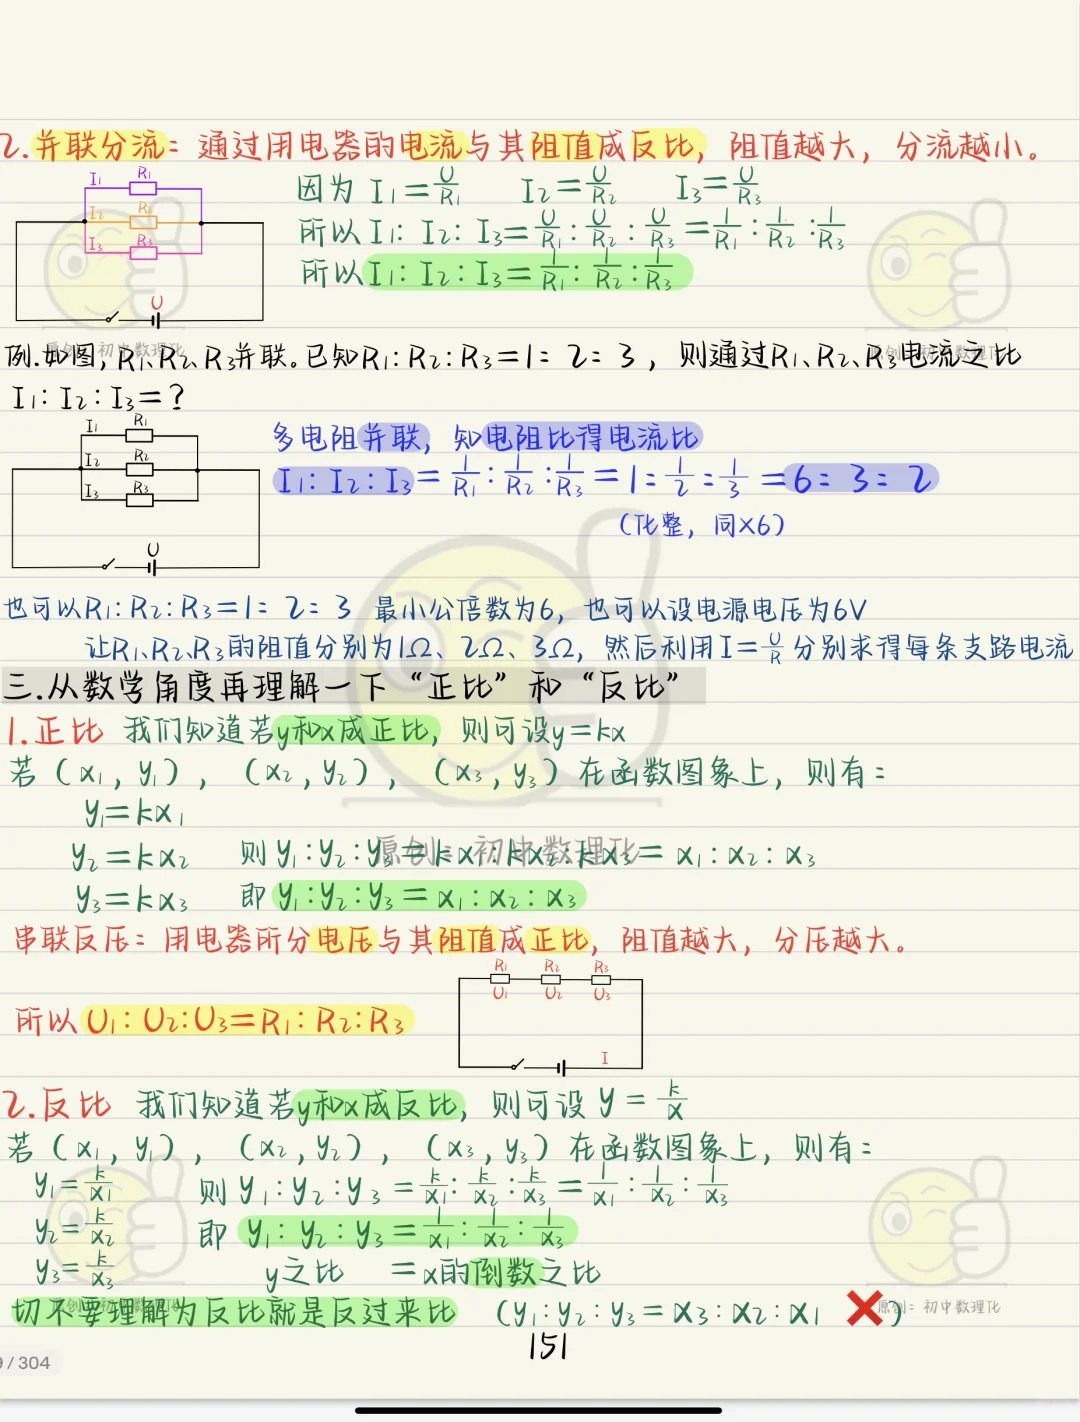 2.并联分流：通过用电器的电流与其阻值成反比，阻值越大，分流越小。
I₁ R₁
I₂ R₂
I₃ R₃
U
因为 I₁=U/R₁ I₂=U/R₂ I₃=U/R₃
所以 I₁：I₂：I₃=U/R₁：U/R₂：U/R₃=1/R₁：1/R₂：1/R₃
所以 I₁：I₂：I₃=1/R₁：1/R₂：1/R₃
原创：初中数理化
例.如图，R₁、R₂、R₃并联。已知R₁：R₂：R₃=1：2：3，则通过R₁、R₂、R₃电流之比
I₁：I₂：I₃=？
I₁ R₁
I₂ R₂
I₃ R₃
U
多电阻并联，知电阻比得电流比
I₁：I₂：I₃=1/R₁：1/R₂：1/R₃=1：1/2：1/3=6：3：2
（化整，同×6）
也可以R₁：R₂：R₃=1：2：3 最小公倍数为6，也可以设电源电压为6V
让R₁、R₂、R₃的阻值分别为1Ω、2Ω、3Ω，然后利用I=U/R分别求得每条支路电流
三.从数学角度再理解一下“正比”和“反比”
1.正比 我们知道若y和x成正比，则可设y=kx
若（x₁，y₁），（x₂，y₂），（x₃，y₃）在函数图象上，则有：
y₁=kx₁
y₂=kx₂ 则y₁：y₂：y₃=kx₁：kx₂：kx₃=x₁：x₂：x₃
原创：初中数理化
y₃=kx₃ 即y₁：y₂：y₃=x₁：x₂：x₃
串联反压：用电器所分电压与其阻值成正比，阻值越大，分压越大。
R₁ R₂ R₃
U₁ U₂ U₃
所以U₁：U₂：U₃=R₁：R₂：R₃
I
2.反比 我们知道若y和x成反比，则可设 y=k/x
若（x₁，y₁），（x₂，y₂），（x₃，y₃）在函数图象上，则有：
y₁=k/x₁ 则y₁：y₂：y₃=k/x₁：k/x₂：k/x₃=1/x₁：1/x₂：1/x₃
y₂=k/x₂ 即y₁：y₂：y₃=1/x₁：1/x₂：1/x₃
y₃=k/x₃ y之比 =x的倒数之比
切不要理解为反比就是反过来比 （y₁：y₂：y₃=x₃：x₂：x₁ ❌）
原创：初中数理化
151
9 / 304